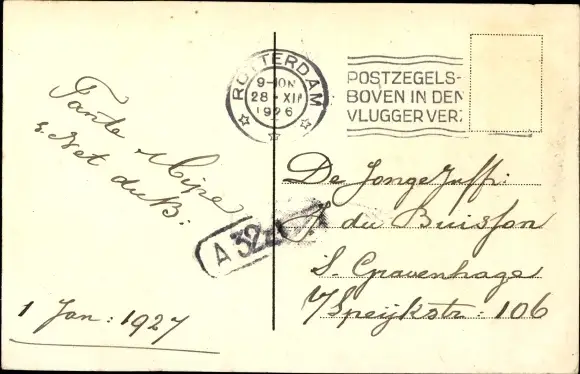 ROTTERDAM
9-10N
28·XII
1926
POSTZEGELS-
BOVEN IN DEN
VLUGGER VERZ
Tante Mize
v. Net du B.
A 32
1 Jan: 1927
De Jonge Juff:
du Buisson
S. Gravenhage
V Speijkstr: 106